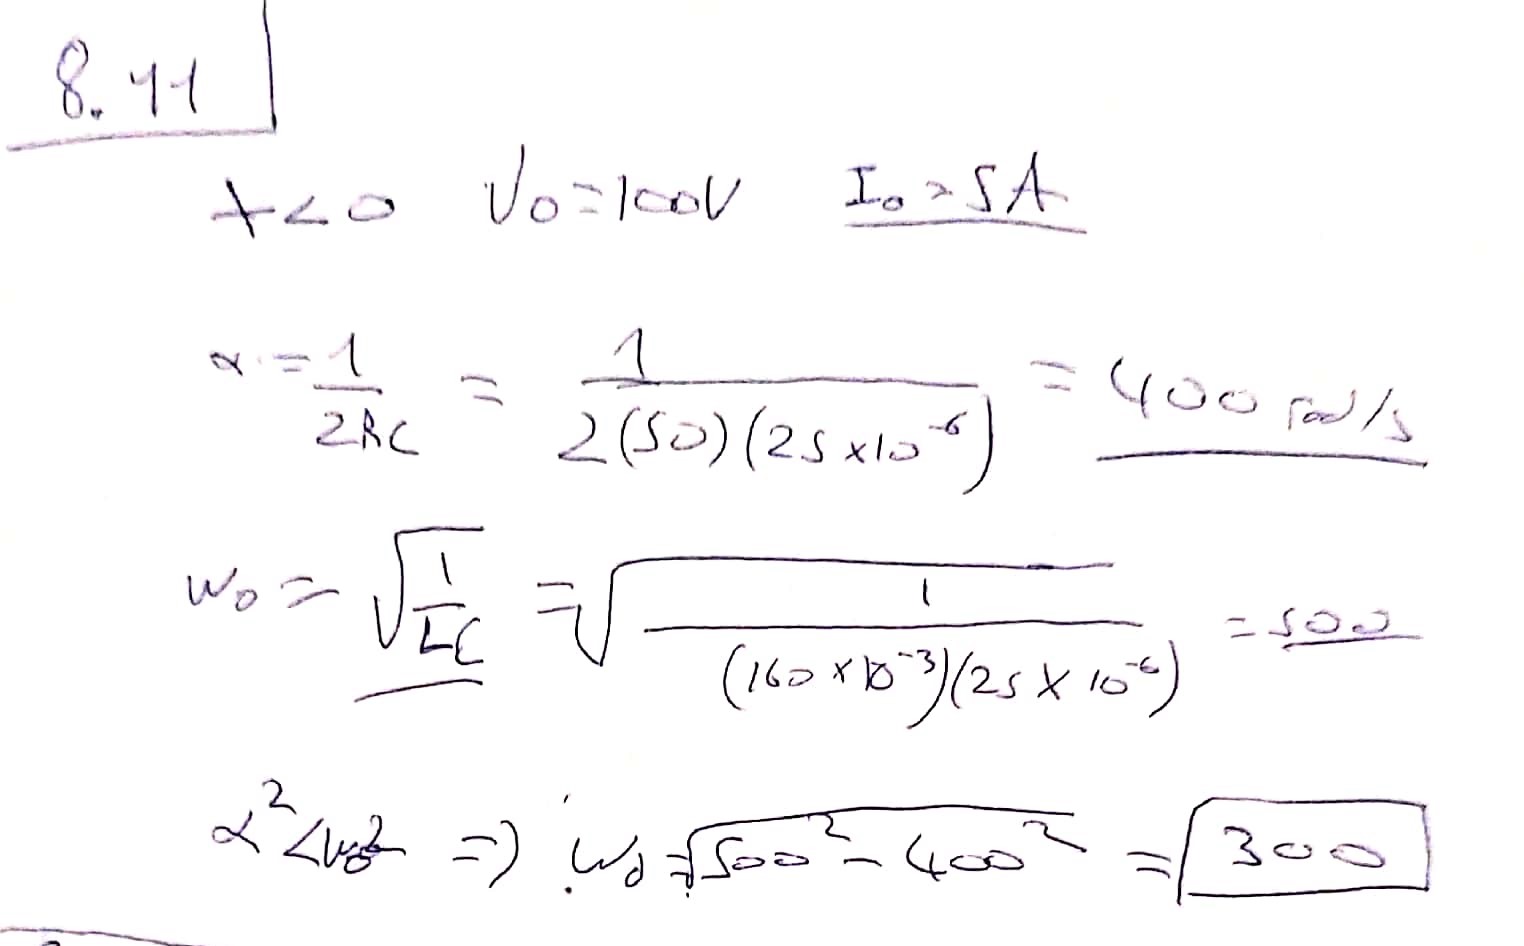 8.41
t<0 V0=100V I0=5A
α = 1/2RC = 1/2(50)(25x10^-6) = 400 rad/s
W0 = √(1/LC) = √(1/(160x10^-3)(25x10^-6)) = 500
α^2<W0^2 => Wd=√(500^2-400^2) = 300